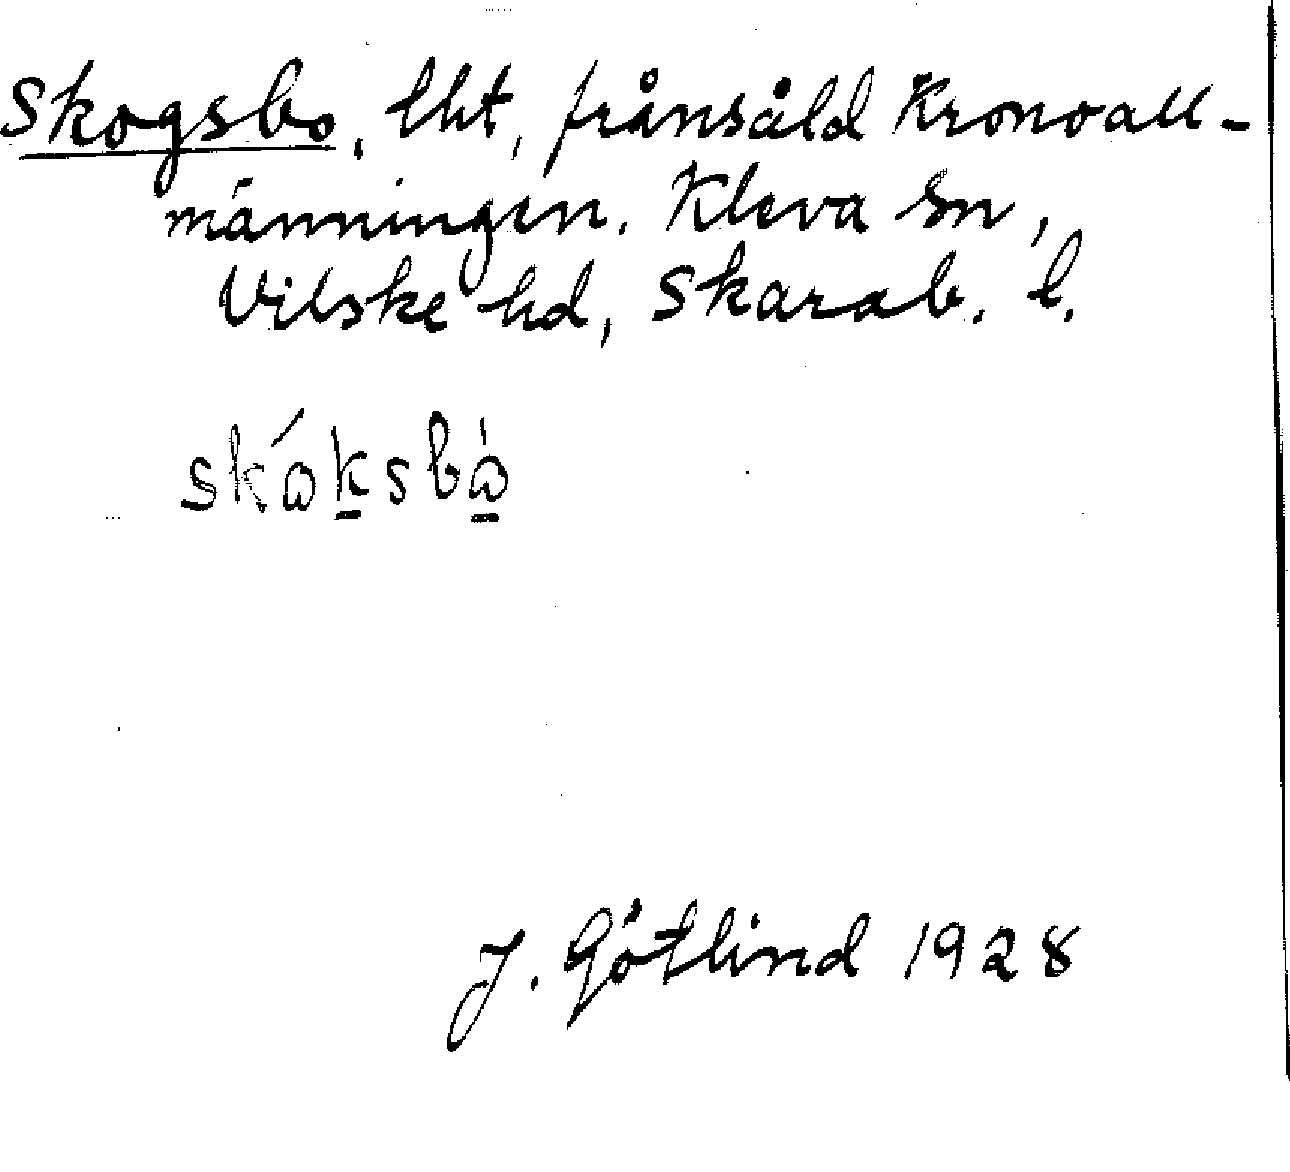 Skogsbo, lht, frånsåld Kronoall-
männingen. Kleva sn,
Vilske hd, Skarab. l.
skáksbà
J. Götlind 1928